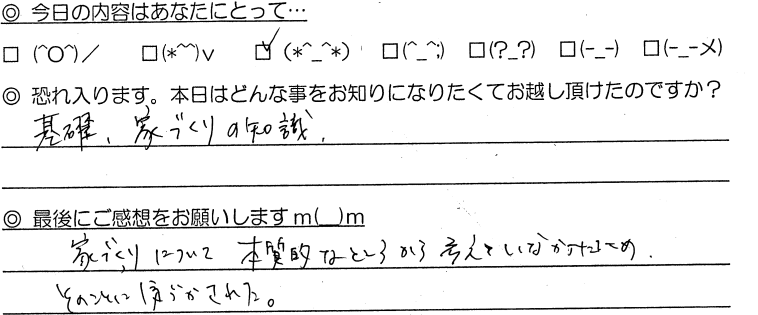 ◎ 今日の内容はあなたにとって…
□ (^O^)／ □(*^^)v ☑ (*^_^*) □(^_^;) □(?_?) □(-_-) □(-_-メ)
◎ 恐れ入ります。本日はどんな事をお知りになりたくてお越し頂けたのですか？
基礎、家づくりの知識、
◎ 最後にご感想をお願いします m(__)m
家づくりについて 本質的なところから 考えていなかったため、
そのことに 気づかされた。